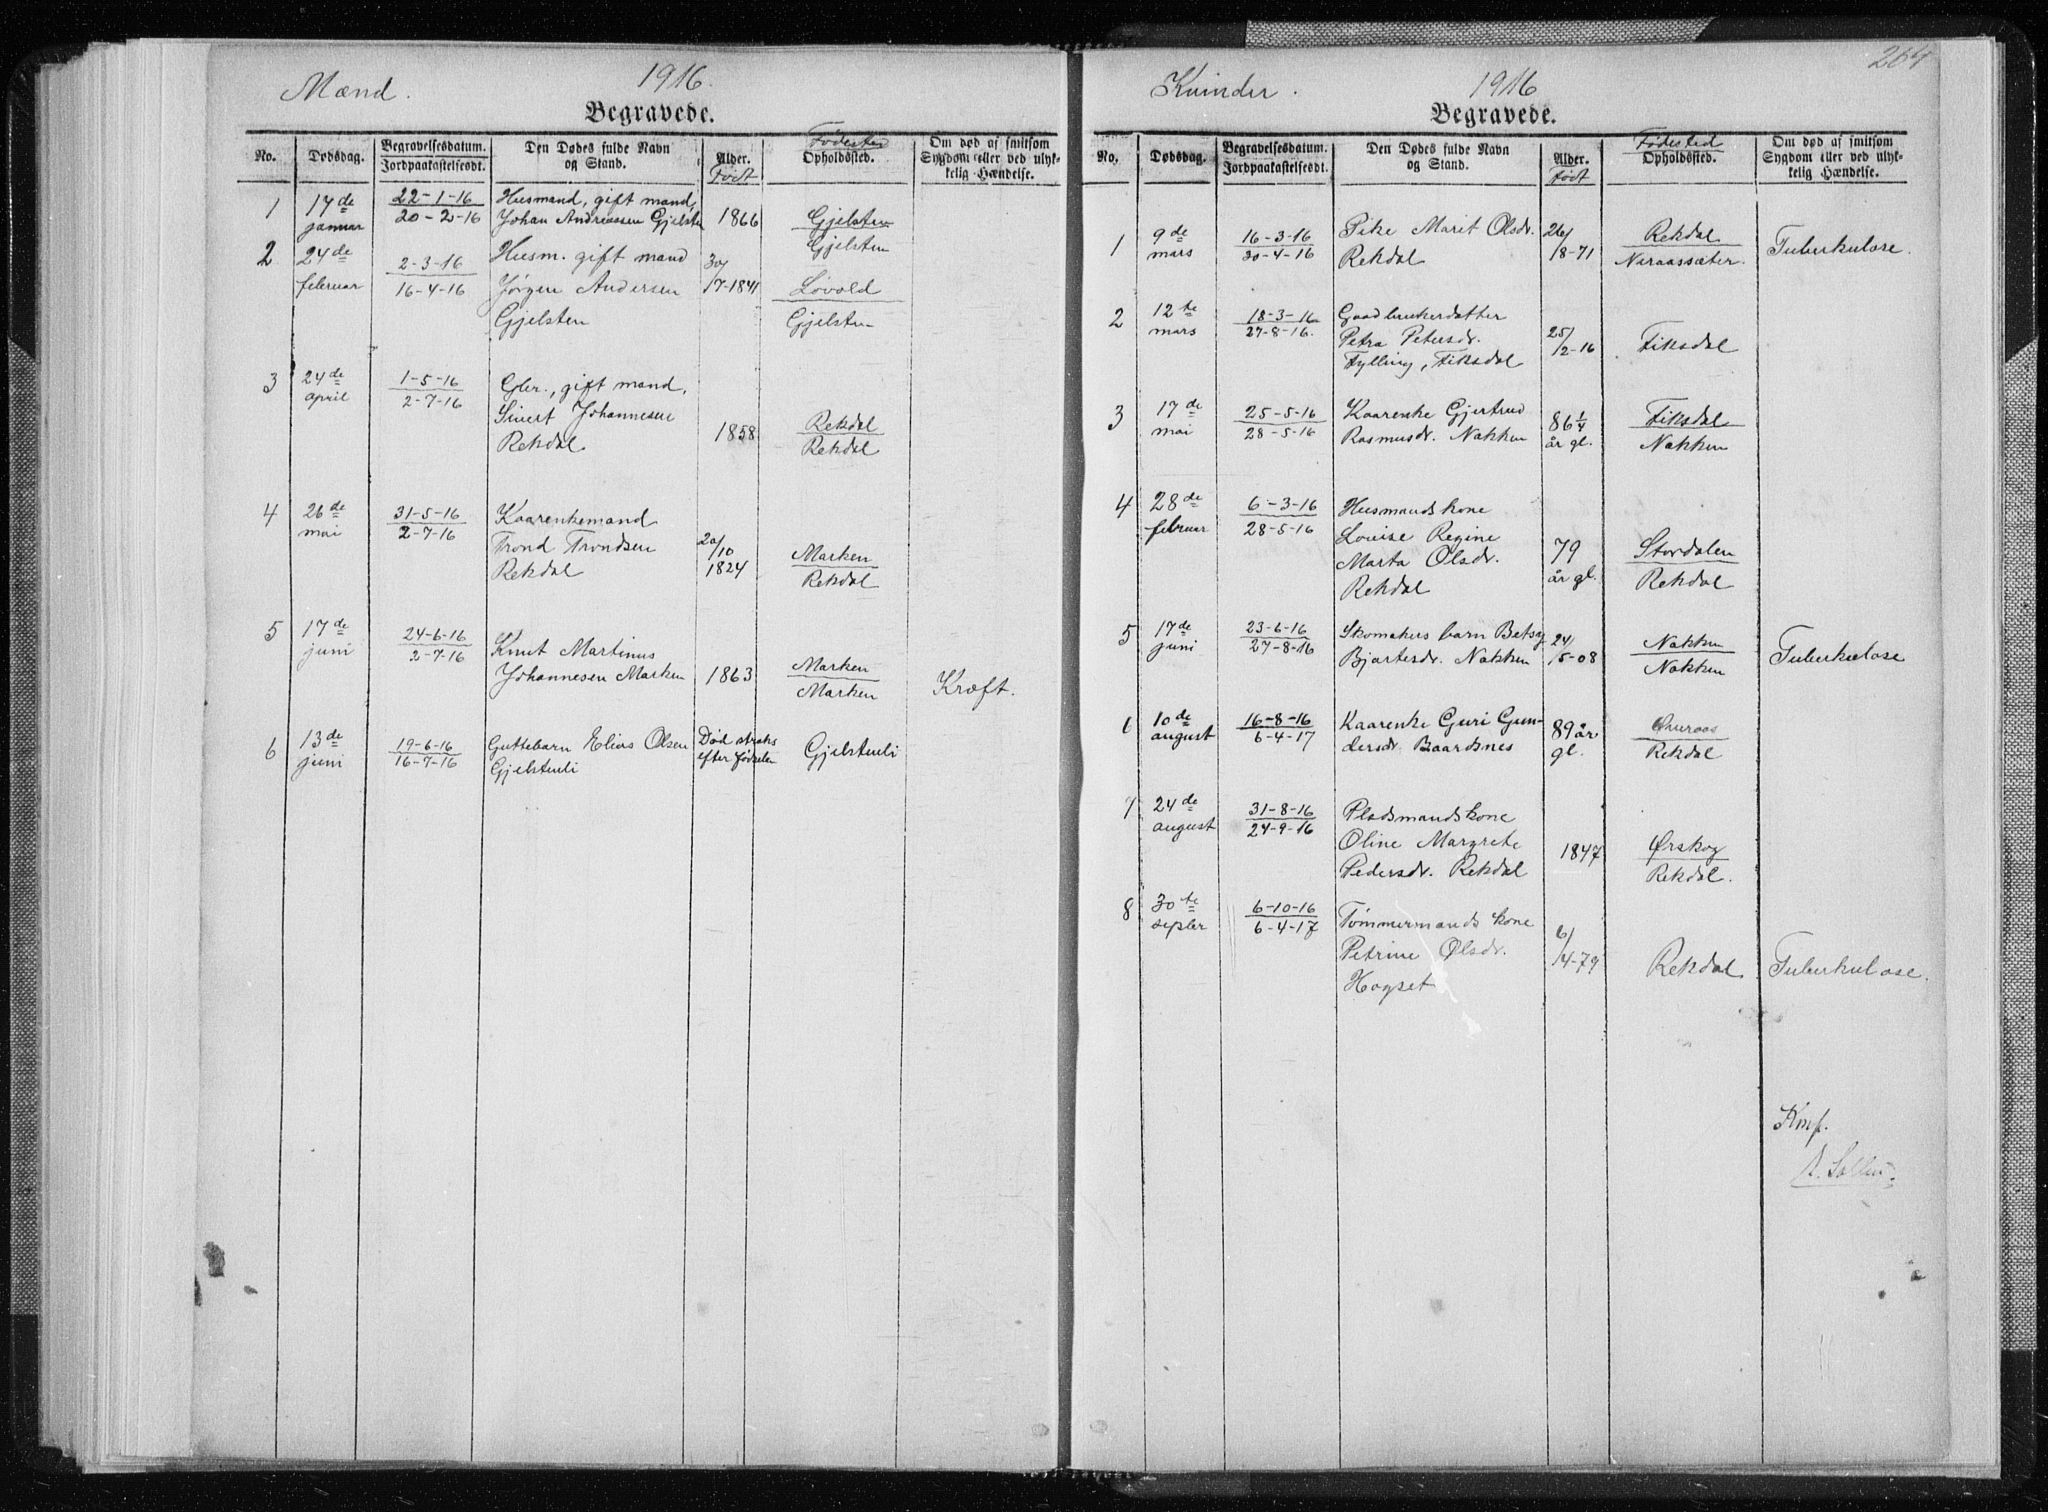 Mænd. 1916.
Begravede.
No. Dødsdag. Begravelsesdatum. Jordpaakastelsesdt. Den Dødes fulde Navn og Stand. Alder. Født Fødested Opholdssted. Om død af smitsom Sygdom eller ved ulykkelig Hændelse.
1 17de 22-1-16 Husmand, gift mand,
januar 20-2-16 Johan Andreassen Gjelsten 1866 Gjelsten
Gjelsten
2 24de 2-3-16 Husm. gift mand 30/
februar 16-4-16 Jørgen Andersen 7-1841 Løvold
Gjelsten Gjelsten
3 24de 1-5-16 Gbr., gift mand,
april 2-7-16 Sivert Johannesen
Rekdal 1858 Rekdal
Rekdal
4 26de 31-5-16 Kaarenkemand
mai 2-7-16 Trond Trondsen 20/10
Rekdal 1824 Marken
Rekdal
5 17de 24-6-16
juni 2-7-16 Knut Martinus
Johannesen Marken 1863 Marken
Marken Kræft.
6 13de 19-6-16 Guttebarn Elias Olsen Død straks
juni 16-7-16 Gjelstenli efter fødselen Gjelstenli
264
Kvinder. 1916
Begravede.
No. Dødsdag. Begravelsesdatum. Jordpaakastelsesdt. Den Dødes fulde Navn og Stand. Alder. født Fødested Opholdssted. Om død af smitsom Sygdom eller ved ulykkelig Hændelse.
1 9de 16-3-16 Pike Marit Olsdr. 26/ Rekdal
mars 20-4-16 Rekdal 8-71 Naraassæter. Tuberkulose.
2 12te 18-3-16 Gaardbrukerdatter
mars 27-8-16. Petra Petersdr. 25/
Fylling, Fiksdal 2-16 Fiksdal
3 17de 25-5-16 Kaarenke Gjertrud 86 1/4 Fiksdal
mai 28-5-16 Rasmusdr. Nakken år gl. Nakken
4 28de 6-3-16 Husmandskone
februar 28-5-16 Louise Regine
Marta Olsdr. 79 Stordalen
Rekdal år gl. Rekdal
5 17de 23-6-16 Skomakers barn Betsy 24/ Nakken
juni 27-8-16 Bjartesdr. Nakken 5-08 Nakken Tuberkulose
6 10de 16-8-16 Kaarenke Guri Gun- 89 år
august 6-4-17 dersdr. Baardsnes gl. Rekdal
7 24de 31-8-16 Pladsmandskone
august 24-9-16 Oline Margrete
Pedersdr. Rekdal 1847 Ørskog
Rekdal.
8 30te 6-10-16 Tømmermands kone
septbr 6-4-17 Petrine Olsdr. 6/
Hagset 4-79 Rekdal Tuberkulose.
Knf.